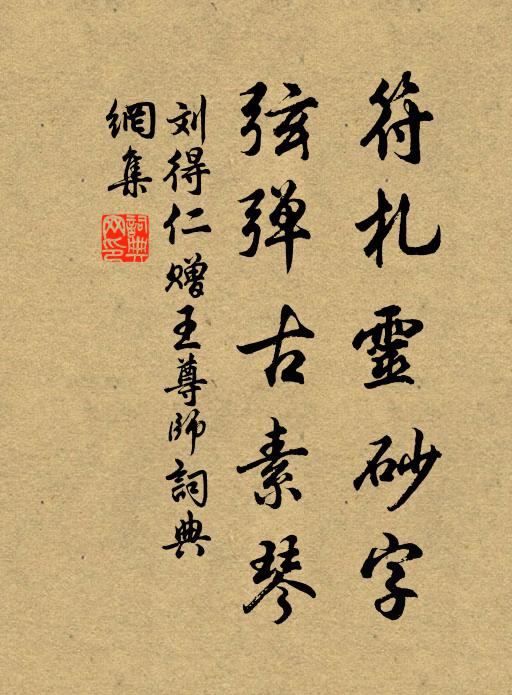 符札靈砂字
弦弹古素琴
刘得仁赠王尊師詞典
網集
詞典
网印